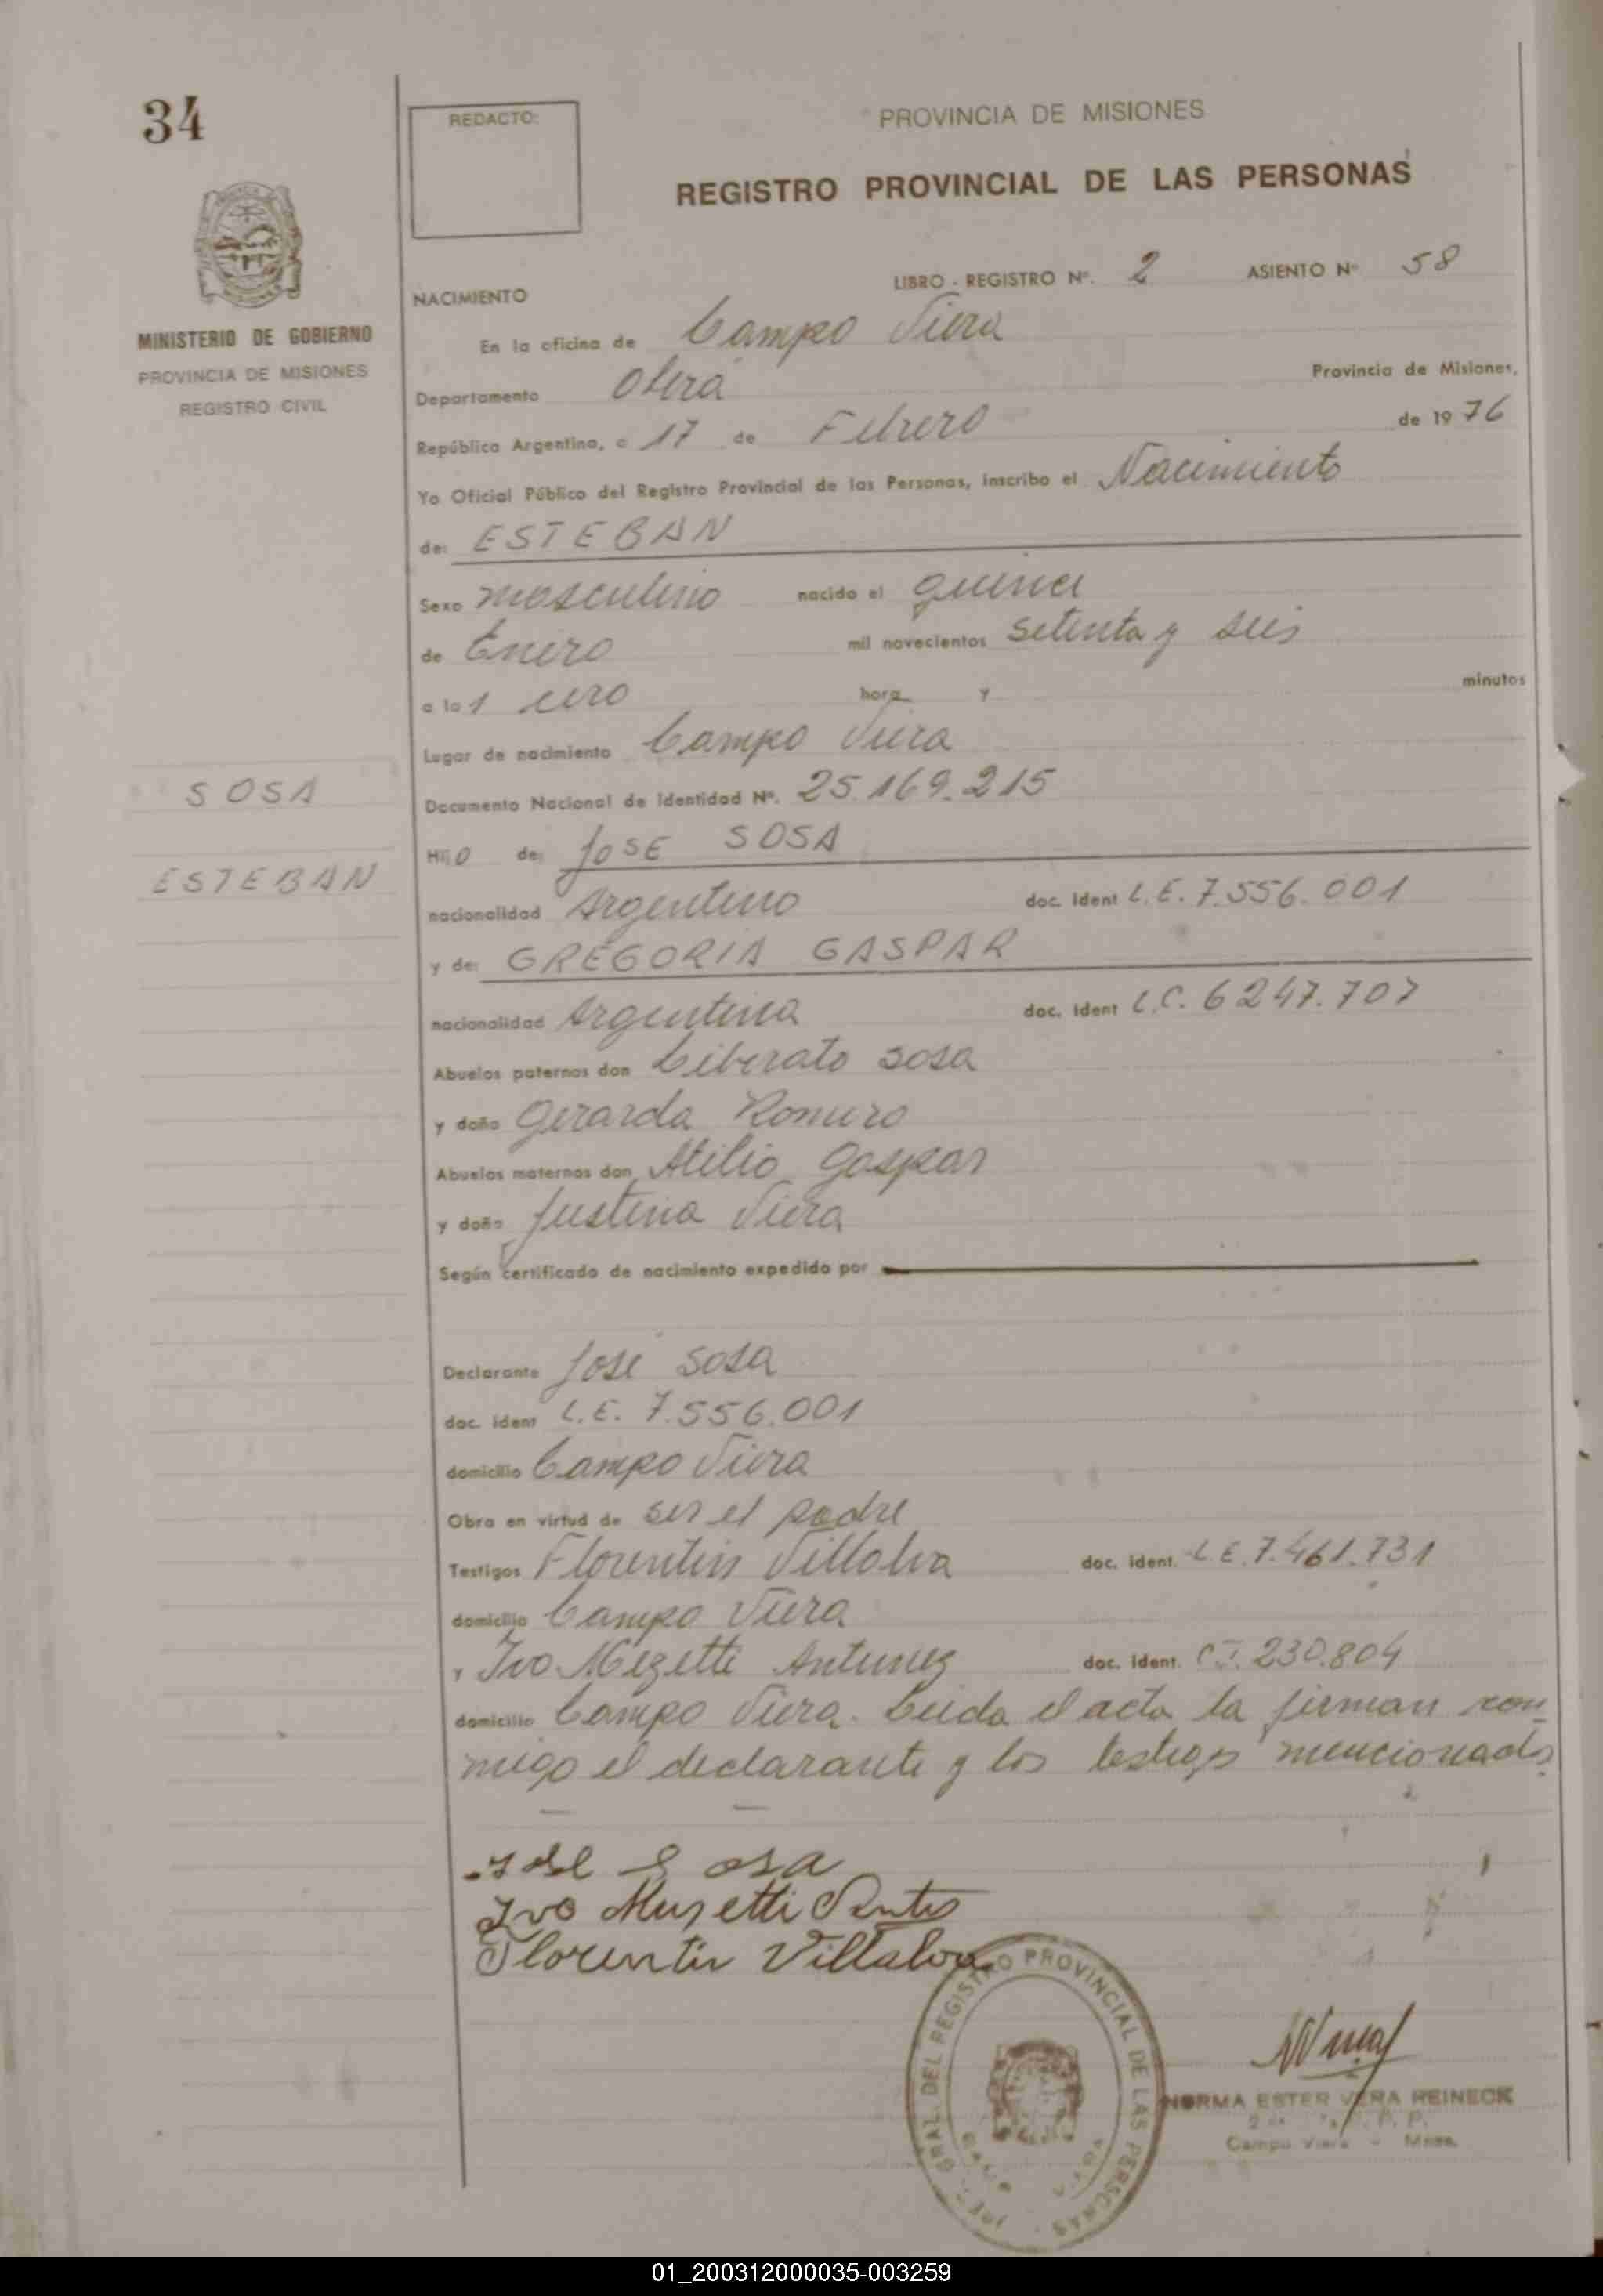 34
REDACTO:
PROVINCIA DE MISIONES
REGISTRO PROVINCIAL DE LAS PERSONAS
MINISTERIO DE GOBIERNO
PROVINCIA DE MISIONES
REGISTRO CIVIL
LIBRO - REGISTRO Nº. 2 ASIENTO Nº 58
NACIMIENTO
En la oficina de Campo Viera
Departamento Oberá Provincia de Misiones,
República Argentina, a 17 de Febrero de 1976
Yo Oficial Público del Registro Provincial de las Personas, inscribo el Nacimiento
de: ESTEBAN
Sexo masculino nacido el quince
de Enero mil novecientos setenta y seis
a la 1 hora y minutos
Lugar de nacimiento Campo Viera
SOSA
Documento Nacional de Identidad Nº. 25.169.215
Hijo de: JOSE SOSA
ESTEBAN
nacionalidad Argentino doc. ident L.E. 7.556.001
y de: GREGORIA GASPAR
nacionalidad Argentina doc. ident L.C. 6247.707
Abuelos paternos don Liberato Sosa
y doña Gerarda Romero
Abuelos maternos don Atilio Gaspar
y doña Justina Viera
Según certificado de nacimiento expedido por
Declarante José Sosa
doc. ident L.E. 7.556.001
domicilio Campo Viera
Obra en virtud de ser el padre
Testigos Florentin Villalva doc. ident. L.E. 7.461.731
domicilio Campo Viera
y Ivo Mezetti Antunez doc. ident. C.I. 230.804
domicilio Campo Viera. Leida el acta la firman con-
migo el declarante y los testigos mencionados.
Sosa
Ivo Musetti
Florentin Villalva
GRAL. DEL REGISTRO PROVINCIAL DE LAS PERSONAS
NORMA ESTER VERA REINECK
Campo Viera - Mnes.
01_200312000035-003259